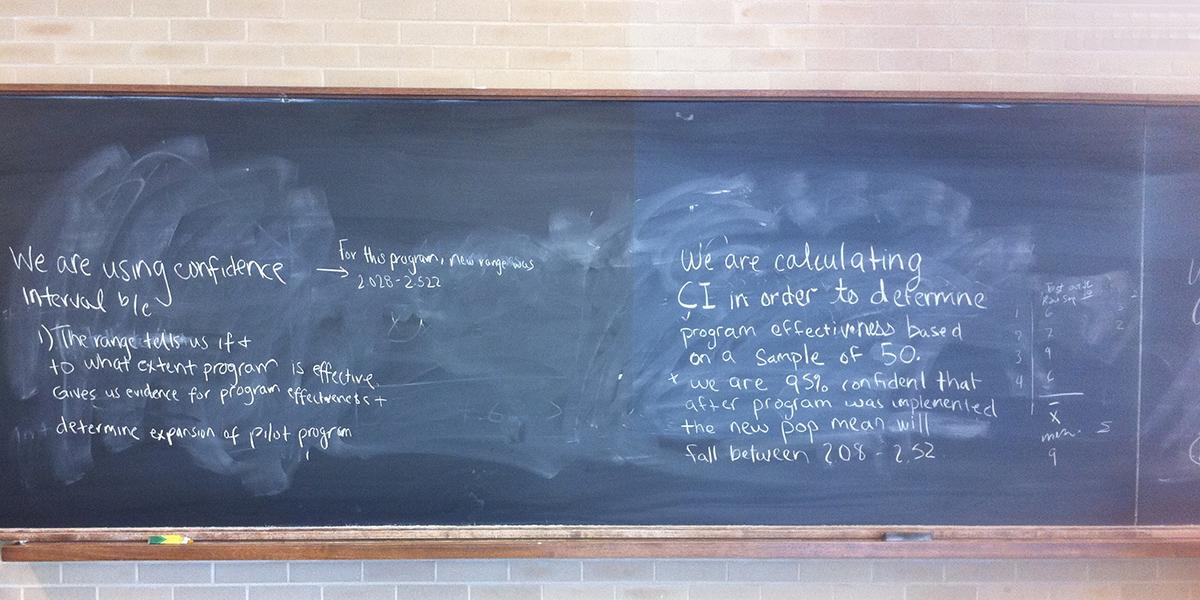 We are using confidence
Interval b/c
→ For this program, new range was
2.028-2.522
1) The range tells us if +
to what extent program is effective.
Gives us evidence for program effectiveness +
determine expansion of pilot program
We are calculating
CI in order to determine
program effectiveness based
on a sample of 50.
* we are 95% confident that
after program was implemented
the new pop mean will
fall between 2.08 - 2.52
1 6
2 7 2
3 9
4 6
x̄
5
9